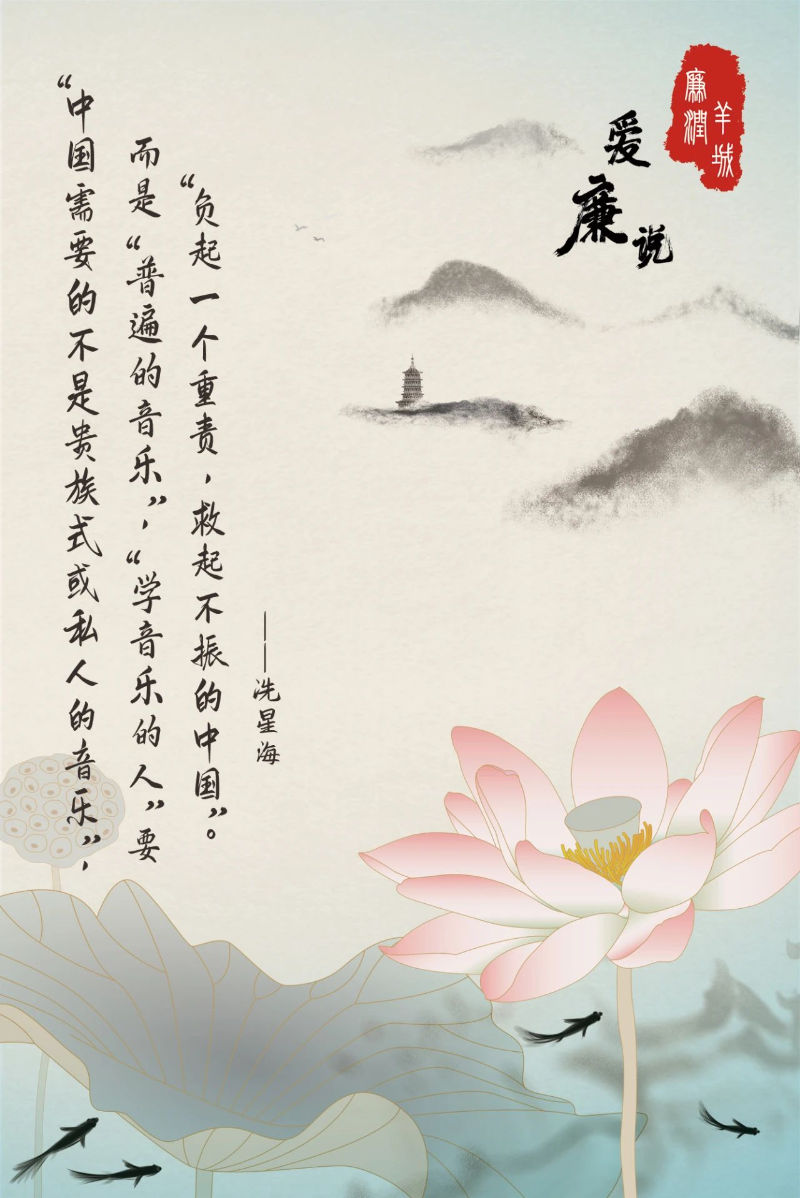 廉潤
羊城
爱廉说
“中国需要的不是贵族式或私人的音乐”，
而是“普遍的音乐”，“学音乐的人”要
“负起一个重责，救起不振的中国”。
——冼星海